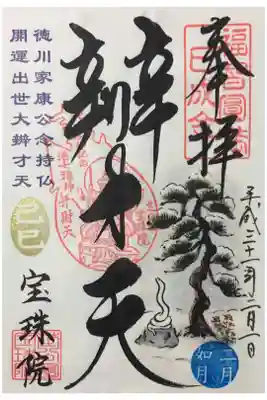 奉拝
平成三十一年二月一日
二月
如月
辨才天
徳川家康公念持仏
開運出世大辨才天
己巳
宝珠院